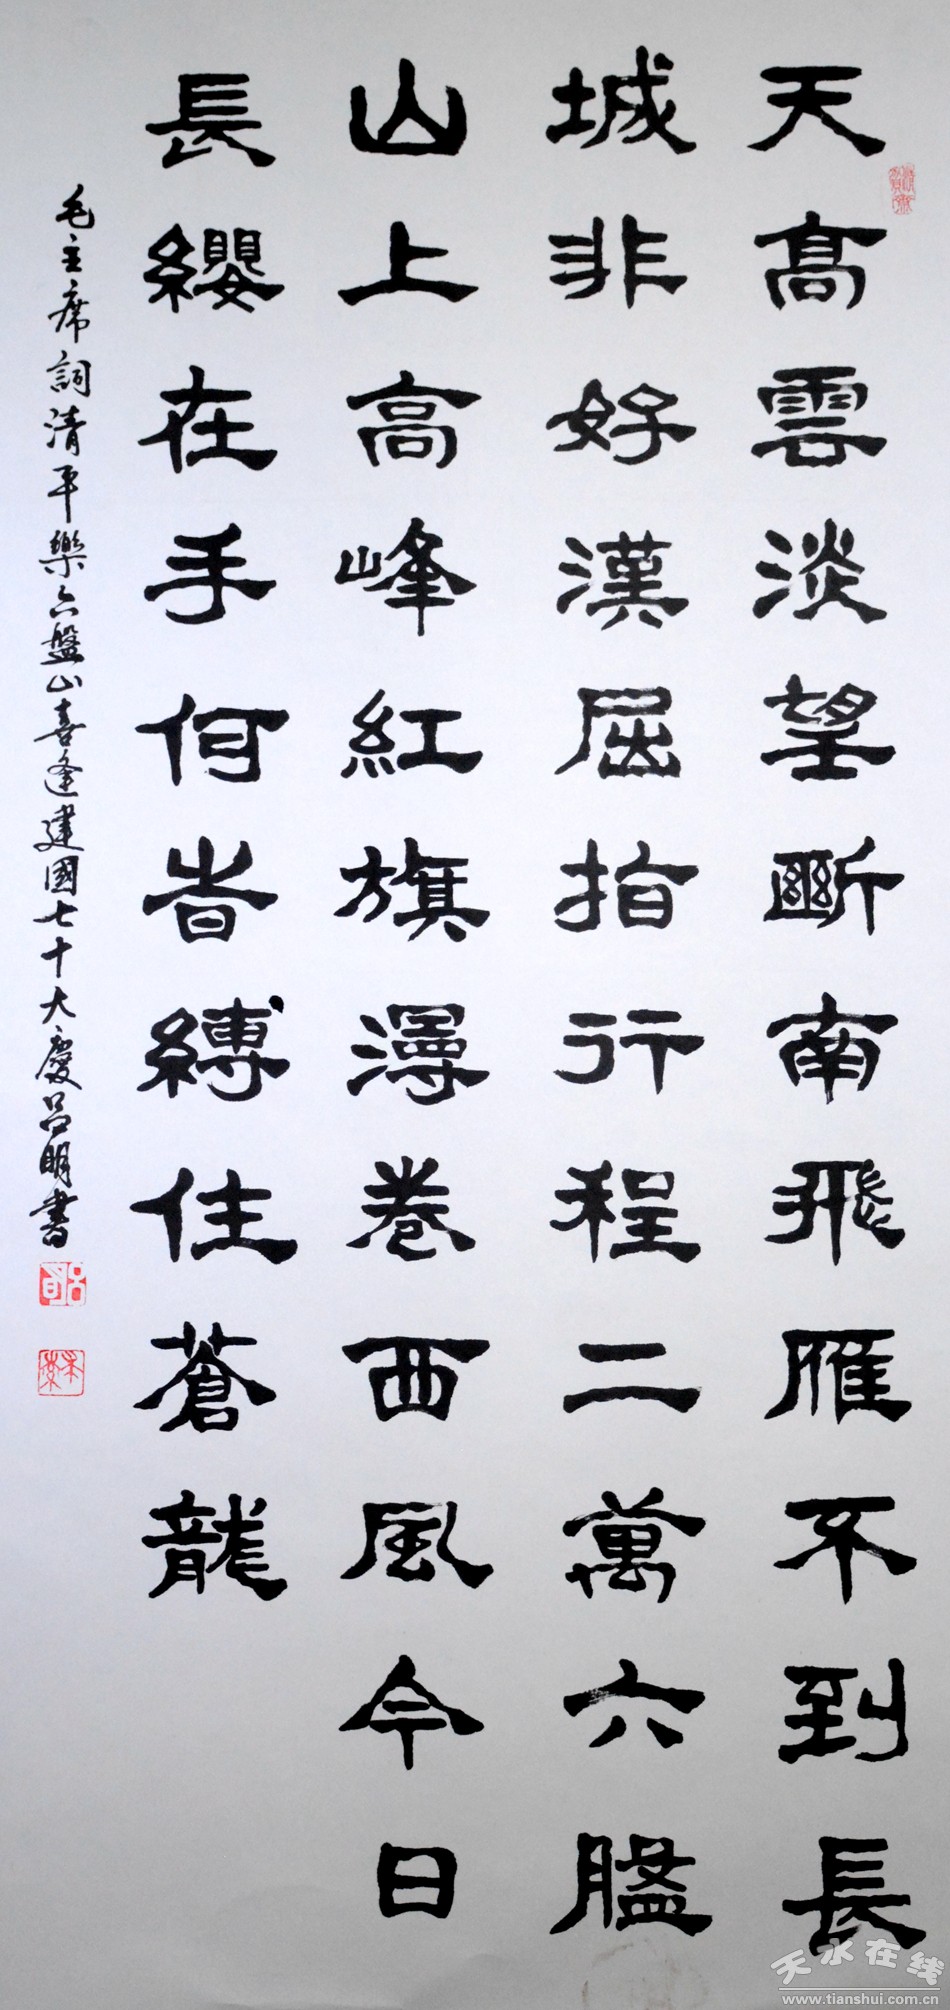 天高雲淡望斷南飛雁不到長
城非好漢屈指行程二萬六盤
山上高峰紅旗漫卷西風今日
長纓在手何時縛住蒼龍
毛主席詞清平樂六盤山喜逢建國七十大慶呂明書
天水在线
www.tianshui.com.cn